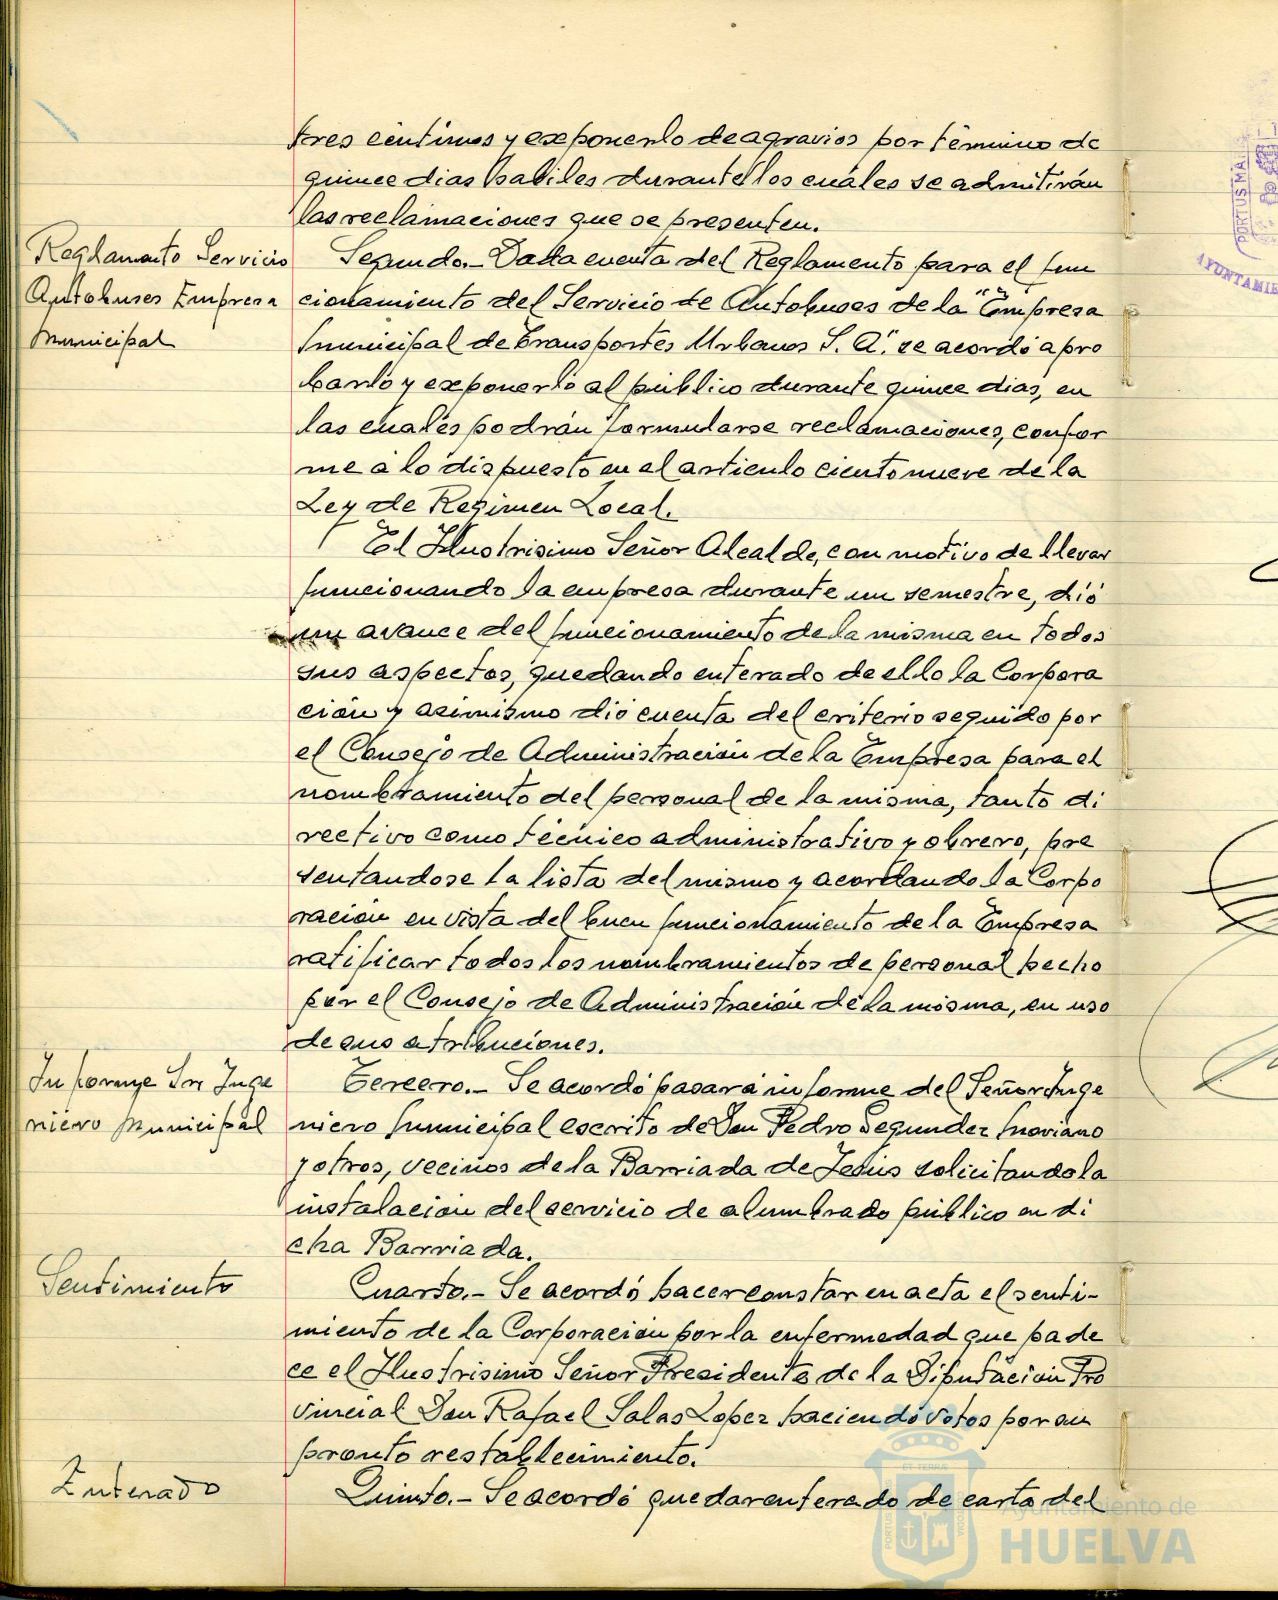 tres céntimos y exponerlo de agravios por término de
quince dias habiles durante los cuáles se admitirán
las reclamaciones que se presenten.
Reglamento Servicio
Autobuses Empresa
Municipal
Segundo.- Dada cuenta del Reglamento para el fun
cionamiento del Servicio de Autobuses de la "Empresa
Municipal de Transportes Urbanos S. A." se acordó apro
barlo y exponerlo al público durante quince dias, en
las cuáles podrán formularse reclamaciones, confor
me a lo dispuesto en el articulo ciento nueve de la
Ley de Regimen Local.
El Ilustrisimo Señor Alcalde, con motivo de llevar
funcionando la empresa durante un semestre, dió
un avance del funcionamiento de la misma en todos
sus aspectos, quedando enterado de ello la Corpora
ción y asimismo dió cuenta del criterio seguido por
el Consejo de Administración de la Empresa para el
nombramiento del personal de la misma, tanto di
rectivo como técnico administrativo y obrero, pre
sentandose la lista del mismo y acordando la Corpo
ración en vista del buen funcionamiento de la Empresa
ratificar todos los nombramientos de personal hecho
por el Consejo de Administración de la misma, en uso
de sus atribuciones.
Informe Sr Inge
niero Municipal
Tercero.- Se acordó pasar a informe del Señor Inge
niero Municipal escrito de Don Pedro Segundez Moriano
y otros, vecinos de la Barriada de Jesús solicitando la
instalación del servicio de alumbrado público en di
cha Barriada.
Sentimiento
Cuarto.- Se acordó hacer constar en acta el senti-
miento de la Corporación por la enfermedad que pade
ce el Ilustrisimo Señor Presidente de la Diputación Pro
vincial Don Rafael Salas Lopez haciendo votos por su
pronto restablecimiento.
Enterado
Quinto.- Se acordó quedar enterado de carta del
PORTUS MA
AYUNTAMIE
Ayuntamiento de
HUELVA